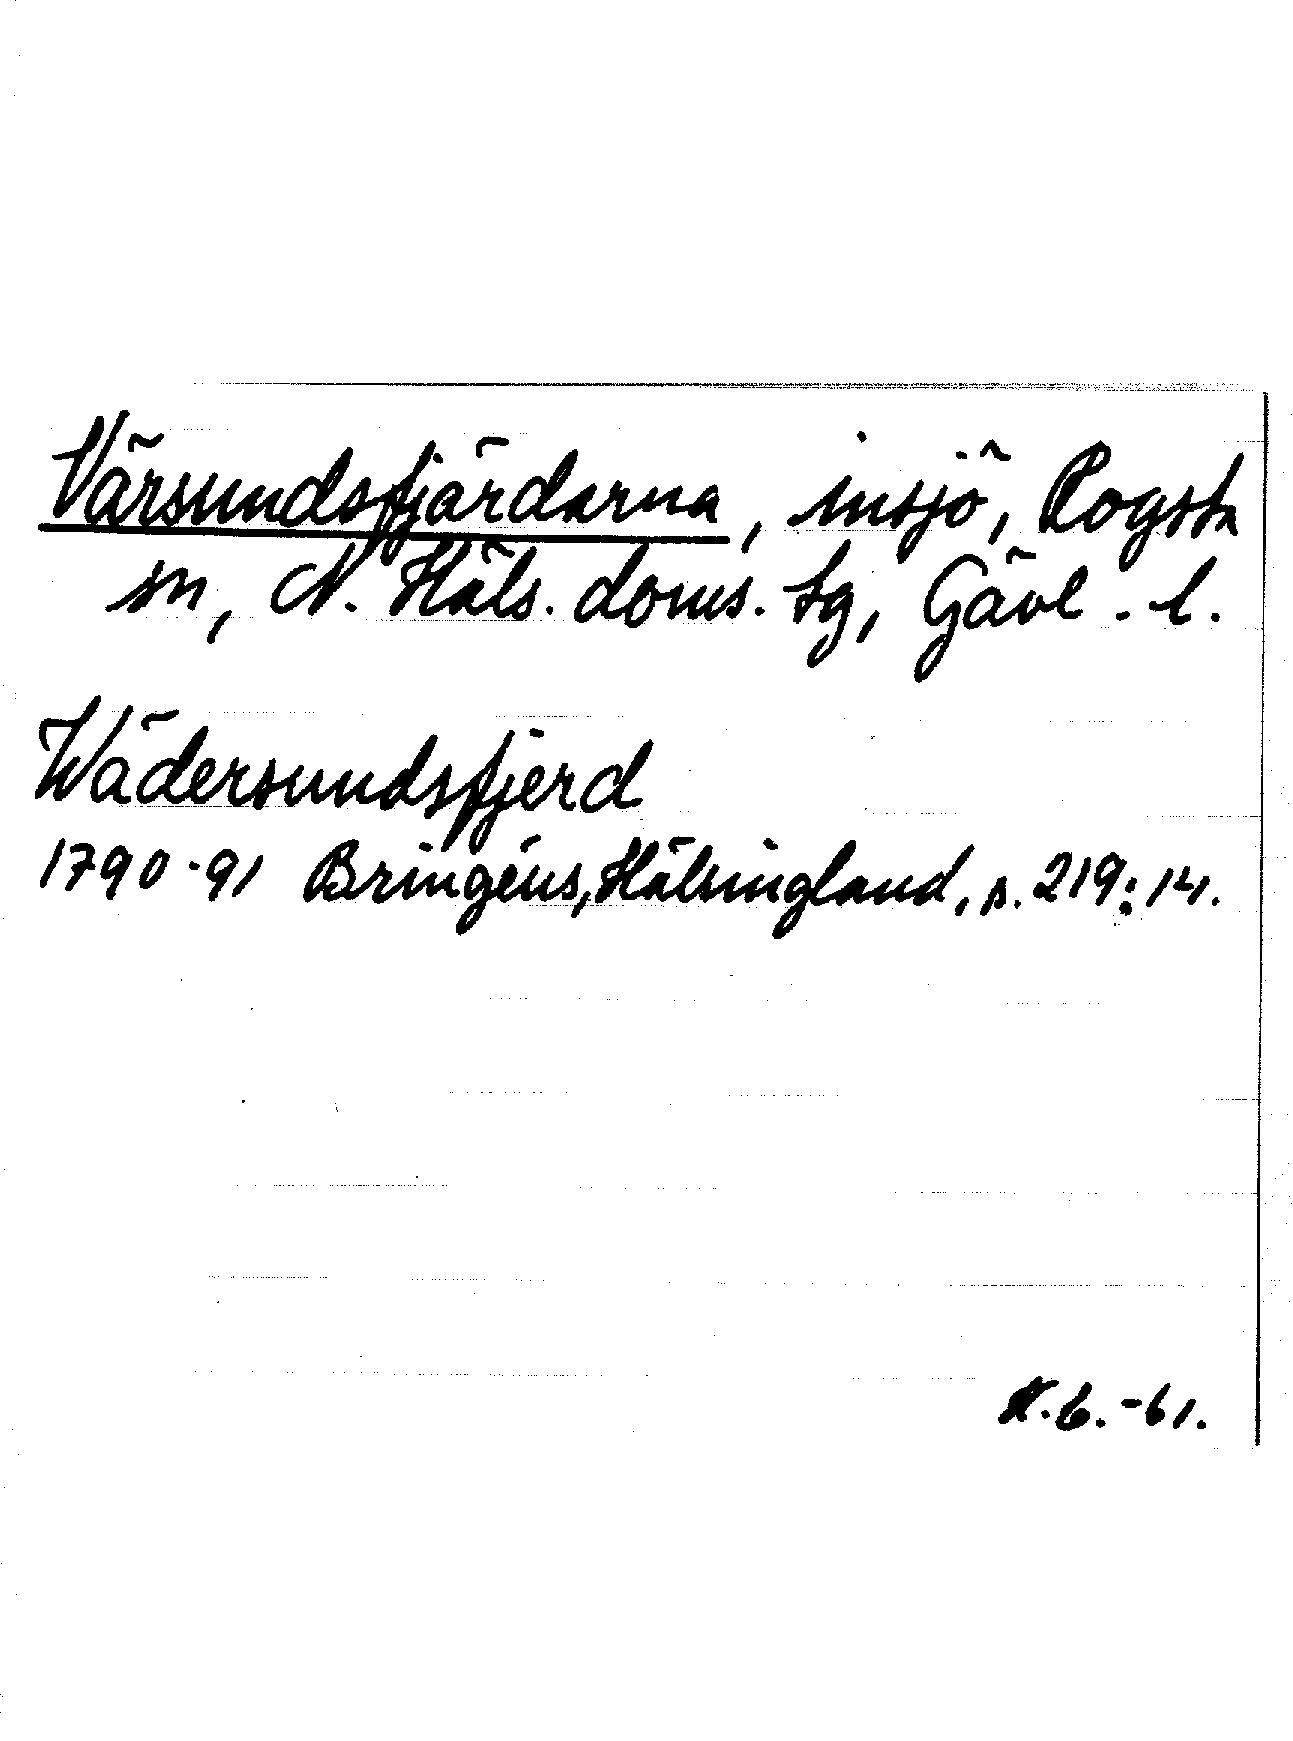 Värsundsfjärdarna, insjö, Rogsta
sn, N. Häls. doms. tg, Gävl. l.
Wädersundsfjerd
1790-91 Bringéus, Hälsingland, s. 219:14.
-61.